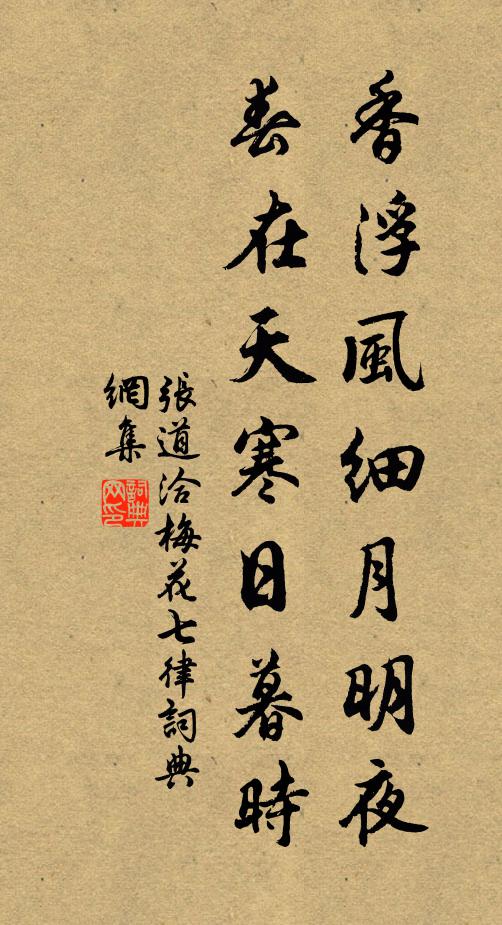 香浮風細月明夜
春在天寒日暮時
張道洽梅花七律詞典
網集
詞典網印